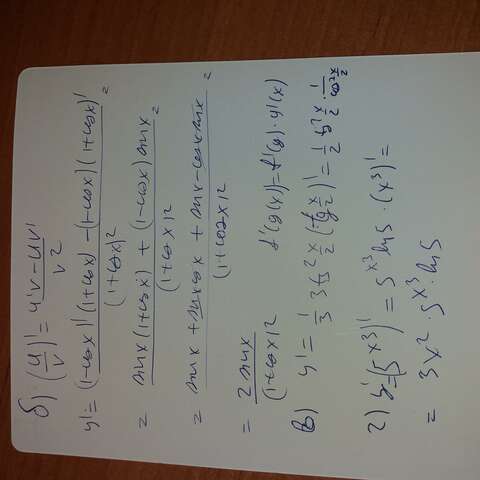 б) (u/v)' = u'v - uv' / v²
y' = (1-cosx)'(1+cosx) - (1-cosx)(1+cosx)' / (1+cosx)² =
= sinx(1+cosx) + (1-cosx)sinx / (1+cosx)² =
= sinx + sinxcosx + sinx - cosxsinx / (1+cosx)² =
= 2sinx / (1+cosx)² f'(g(x)) = f'(g)·g'(x)
в) y' = 1/3 · 3 tg² x/2 (tg x/2)' = 1/2 tg² x/2 · 1/cos² x/2
г) y' = (5^x³)' = 5^x³ ln5 · (x³)' =
= 3x² · 5^x³ · ln5